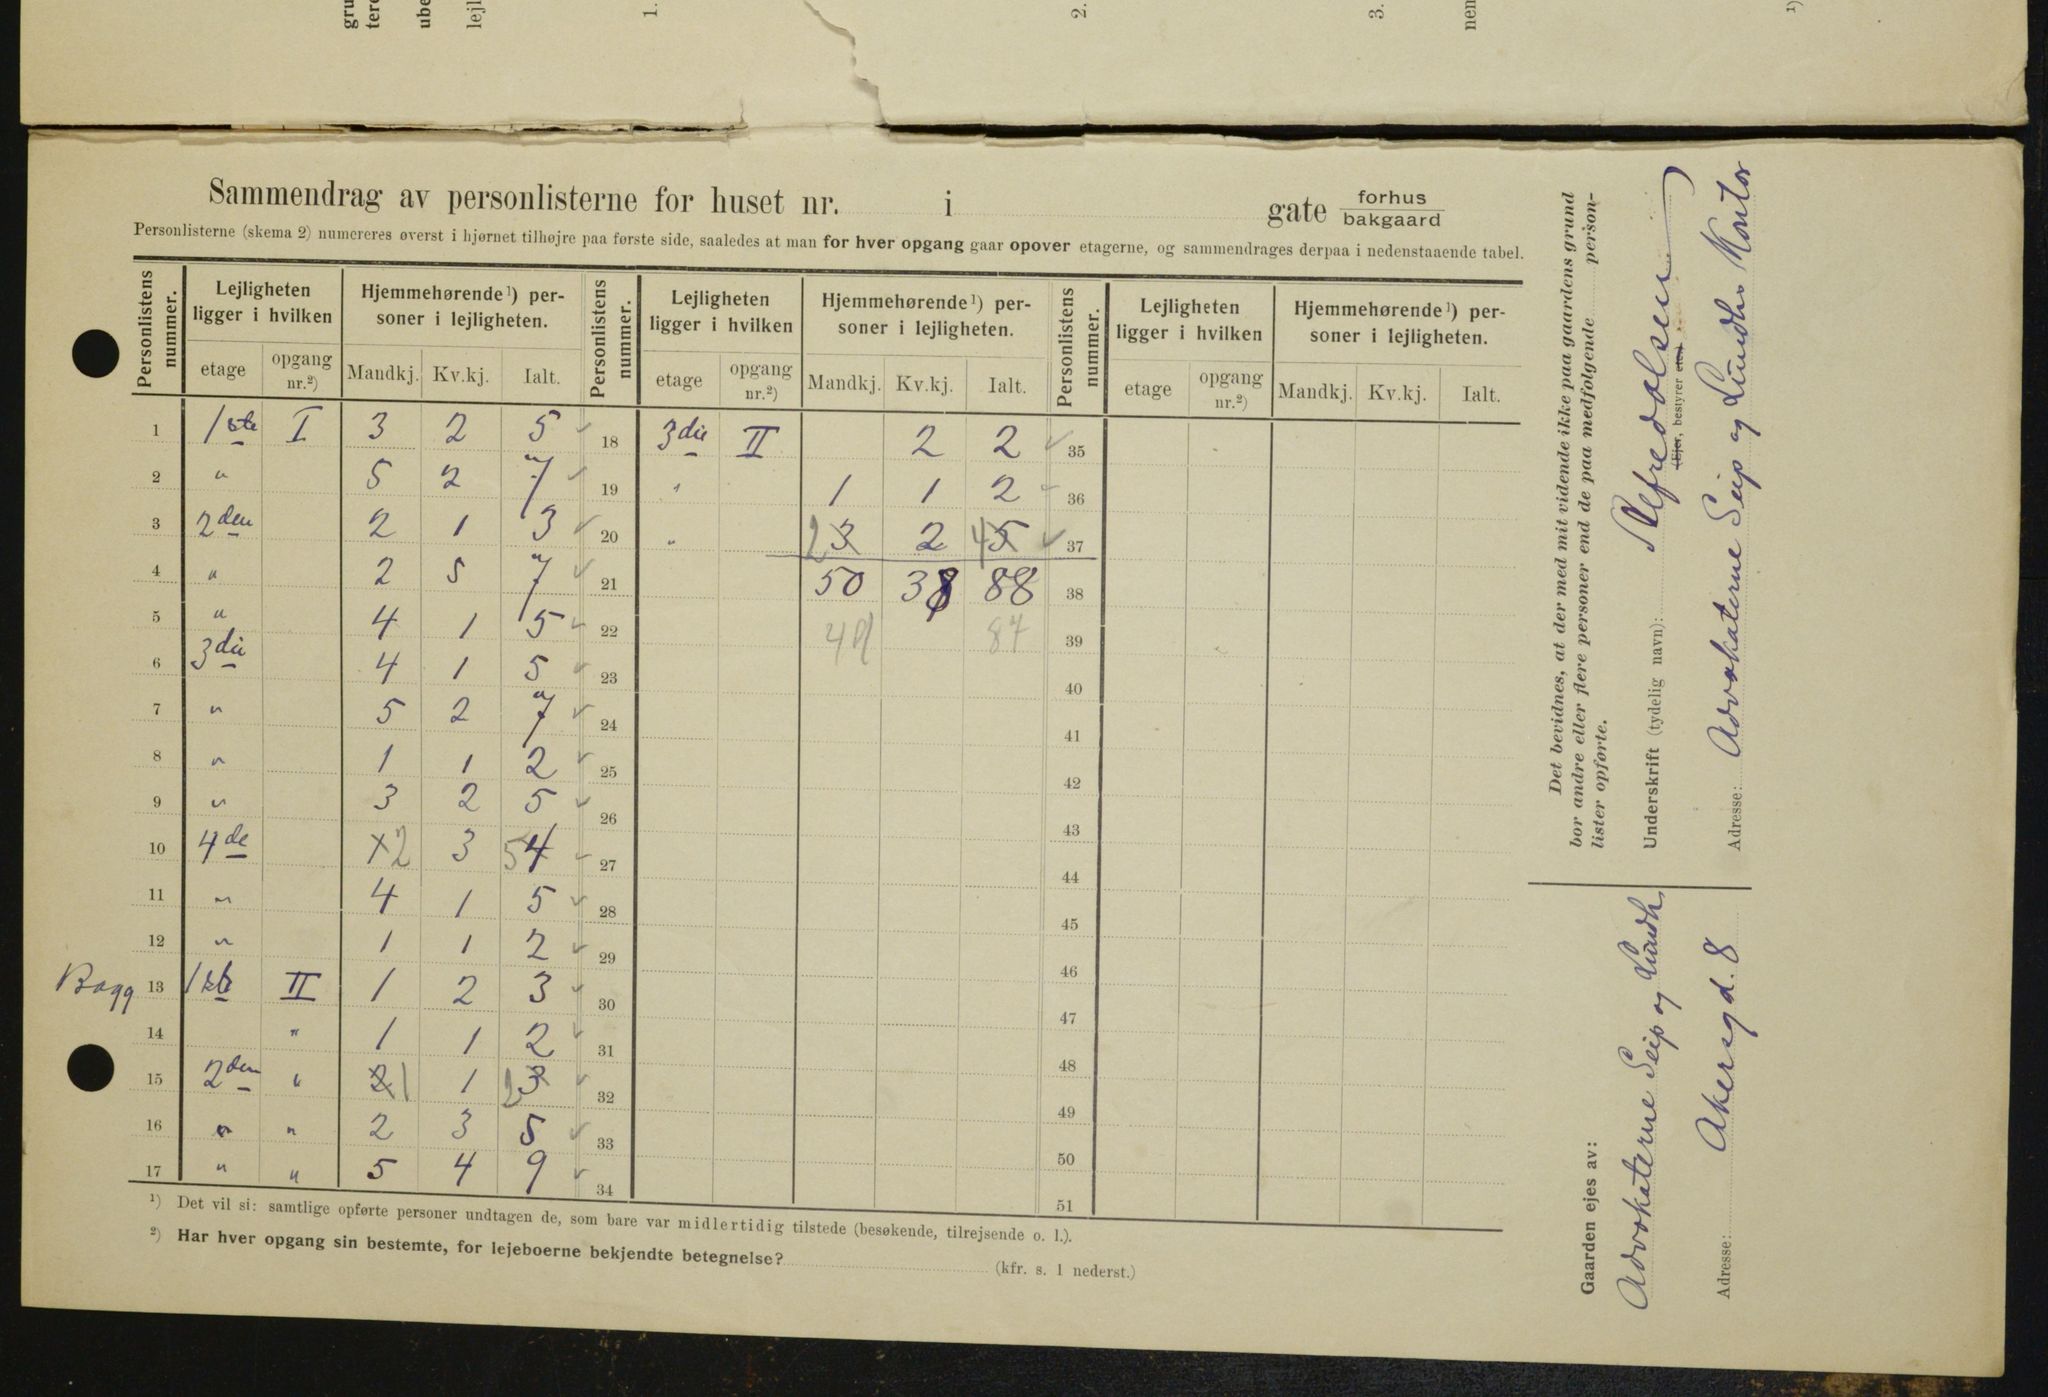 gru
tere
ube
lejl
1.
2.
3.
nem
1)
Sammendrag av personlisterne for huset nr. i gate forhus bakgaard
Personlisterne (skema 2) numereres øverst i hjørnet tilhøjre paa første side, saaledes at man for hver opgang gaar opover etagerne, og sammendrages derpaa i nedenstaaende tabel.
Personlistens nummer. Lejligheten ligger i hvilken Hjemmehørende¹) personer i lejligheten. Personlistens nummer. Lejligheten ligger i hvilken Hjemmehørende¹) personer i lejligheten. Personlistens nummer. Lejligheten ligger i hvilken Hjemmehørende¹) personer i lejligheten.
etage opgang nr.²) Mandkj. Kv.kj. Ialt. etage opgang nr.²) Mandkj. Kv.kj. Ialt. etage opgang nr.²) Mandkj. Kv.kj. Ialt.
1 1ste I 3 2 5 ✓ 18 3die II 2 2 ✓ 35
2 " 5 2 7 ✓ 19 " 1 1 2 ✓ 36
3 2den 2 1 3 ✓ 20 " 2 3 2 4 5 ✓ 37
4 " 2 5 7 ✓ 21 50 38 88 38
5 " 4 1 5 ✓ 22 49 87 39
6 3die 4 1 5 23 40
7 " 5 2 7 ✓ 24 41
8 " 1 1 2 ✓ 25 42
9 " 3 2 5 ✓ 26 43
10 4de 2 3 5 4 ✓ 27 44
11 " 4 1 5 ✓ 28 45
12 " 1 1 2 ✓ 29 46
Bagg 13 1ste II 1 2 3 ✓ 30 47
14 " 1 1 2 ✓ 31 48
15 2den " 2 1 1 2 3 ✓ 32 49
16 " " 2 3 5 ✓ 33 50
17 " " 5 4 9 ✓ 34 51
¹) Det vil si: samtlige opførte personer undtagen de, som bare var midlertidig tilstede (besøkende, tilrejsende o. l.).
²) Har hver opgang sin bestemte, for lejeboerne bekjendte betegnelse? (kfr. s. 1 nederst.)
Det bevidnes, at der med mit vidende ikke paa gaardens grund
bor andre eller flere personer end de paa medfølgende person-
lister opførte.
Underskrift (tydelig navn): Alfred Olsen
(Ejer, bestyrer etc.)
Adresse: Advokaterne Seip og Lundhs Kontor
Gaarden ejes av:
Advokaterne Seip og Lundh
Adresse: Akersgd. 8